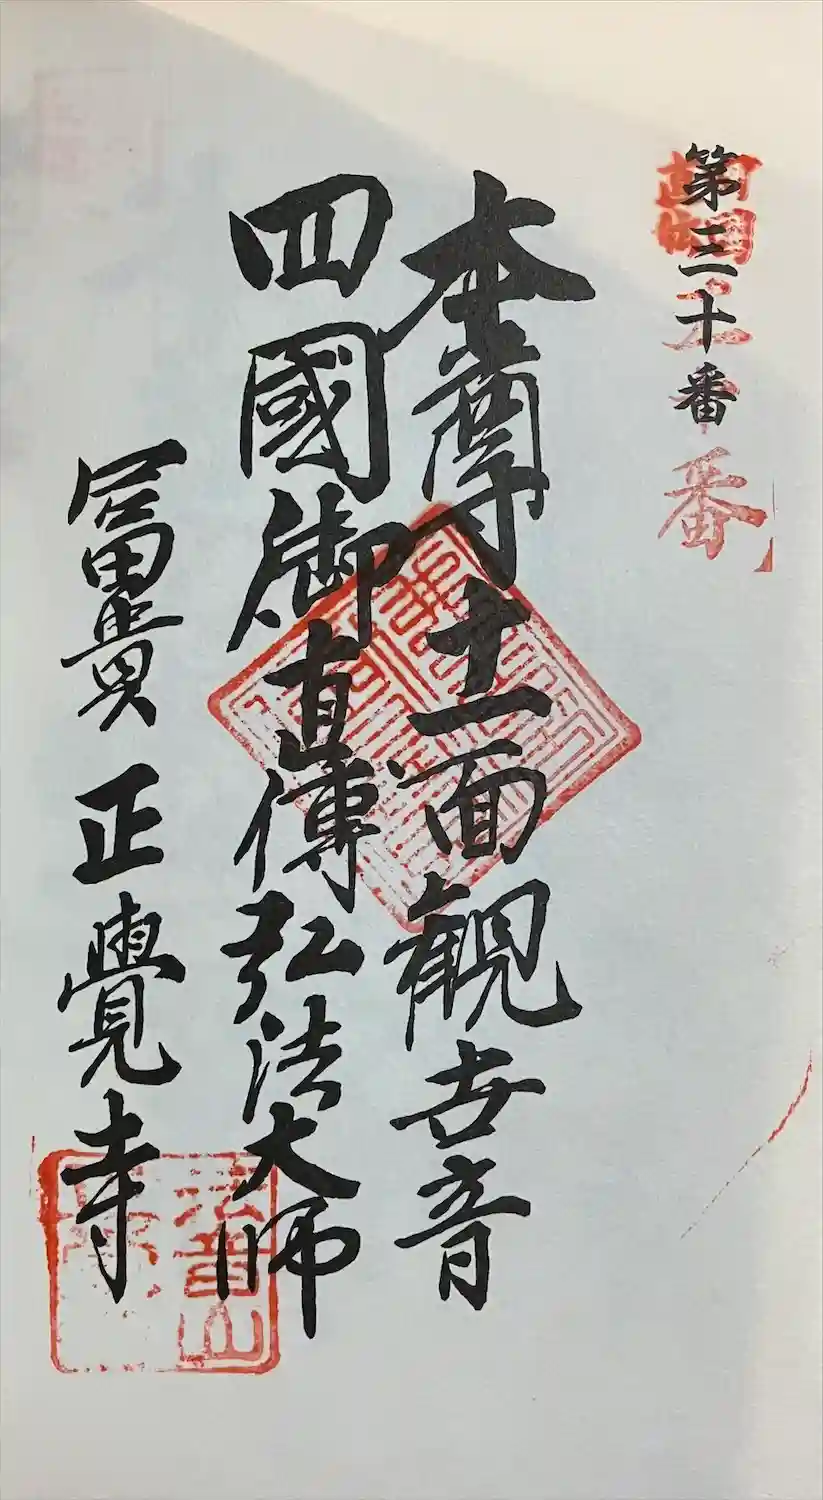 第三十番
番
本尊十一面観世音
四國御直傳弘法大師
冨貴正覺寺
法音山